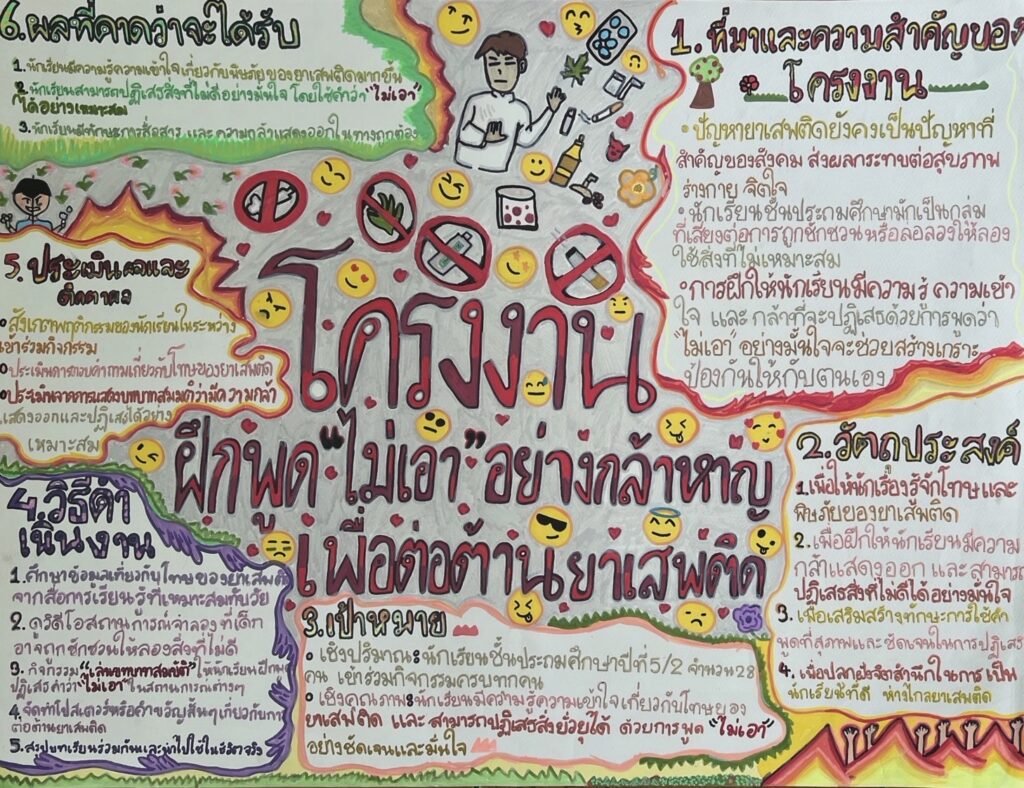 โครงงาน
ฝึกพูด "ไม่เอา" อย่างกล้าหาญ
เพื่อต่อต้านยาเสพติด
1. ที่มาและความสำคัญของ
โครงงาน
• ปัญหายาเสพติดยังคงเป็นปัญหาที่
สำคัญของสังคม ส่งผลกระทบต่อสุขภาพ
ร่างกาย จิตใจ
• นักเรียนชั้นประถมศึกษามักเป็นกลุ่ม
ที่เสี่ยงต่อการถูกชักชวน หรือล่อลวงให้ลอง
ใช้สิ่งที่ไม่เหมาะสม
• การฝึกให้นักเรียนมีความรู้ ความเข้า
ใจ และ กล้าที่จะปฏิเสธด้วยการพูดว่า
"ไม่เอา" อย่างมั่นใจจะช่วยสร้างเกราะ
ป้องกันให้กับตนเอง
2. วัตถุประสงค์
1. เพื่อให้นักเรียนรู้จักโทษและ
พิษภัยของยาเสพติด
2. เพื่อฝึกให้นักเรียนมีความ
กล้าแสดงออก และสามารถ
ปฏิเสธสิ่งที่ไม่ดีได้อย่างมั่นใจ
3. เพื่อเสริมสร้างทักษะการใช้คำ
พูดที่สุภาพและชัดเจนในการปฏิเสธ
4. เพื่อปลูกฝังจิตสำนึกในการ เป็น
นักเรียนที่ดี ห่างไกลยาเสพติด
3. เป้าหมาย
• เชิงปริมาณ: นักเรียนชั้นประถมศึกษาปีที่ 5/2 จำนวน 28
คน เข้าร่วมกิจกรรมครบทุกคน
• เชิงคุณภาพ: นักเรียนมีความรู้ความเข้าใจเกี่ยวกับโทษของ
ยาเสพติด และ สามารถปฏิเสธสิ่งยั่วยุได้ ด้วยการพูด "ไม่เอา"
อย่างชัดเจนและมั่นใจ
4. วิธีดำ
เนินงาน
1. ศึกษาข้อมูลเกี่ยวกับโทษของยาเสพติด
จากสื่อการเรียนรู้ที่เหมาะสมกับวัย
2. ดูวิดีโอสถานการณ์จำลองที่เด็ก
อาจถูกชักชวนให้ลองสิ่งที่ไม่ดี
3. กิจกรรม "เล่นบทบาทสมมติ" ให้นักเรียนฝึกพูด
ปฏิเสธคำว่า "ไม่เอา" ในสถานการณ์ต่างๆ
4. จัดทำโปสเตอร์หรือคำขวัญสั้นๆเกี่ยวกับการ
ต่อต้านยาเสพติด
5. สรุปบทเรียนร่วมกันและนำไปใช้ในชีวิตจริง
5. ประเมินผลและ
ติดตามผล
• สังเกตพฤติกรรมของนักเรียนในระหว่าง
เข้าร่วมกิจกรรม
• ประเมินการตอบคำถามเกี่ยวกับโทษของยาเสพติด
• ประเมินจากการแสดงบทบาทสมมติว่ามีความกล้า
แสดงออกและปฏิเสธได้อย่าง
เหมาะสม
6. ผลที่คาดว่าจะได้รับ
1. นักเรียนมีความรู้ความเข้าใจเกี่ยวกับพิษภัยของยาเสพติดมากขึ้น
2. นักเรียนสามารถปฏิเสธสิ่งที่ไม่ดีอย่างมั่นใจ โดยใช้คำว่า "ไม่เอา"
ได้อย่างเหมาะสม
3. นักเรียนมีทักษะการสื่อสาร และ ความกล้าแสดงออกในทางถูกต้อง